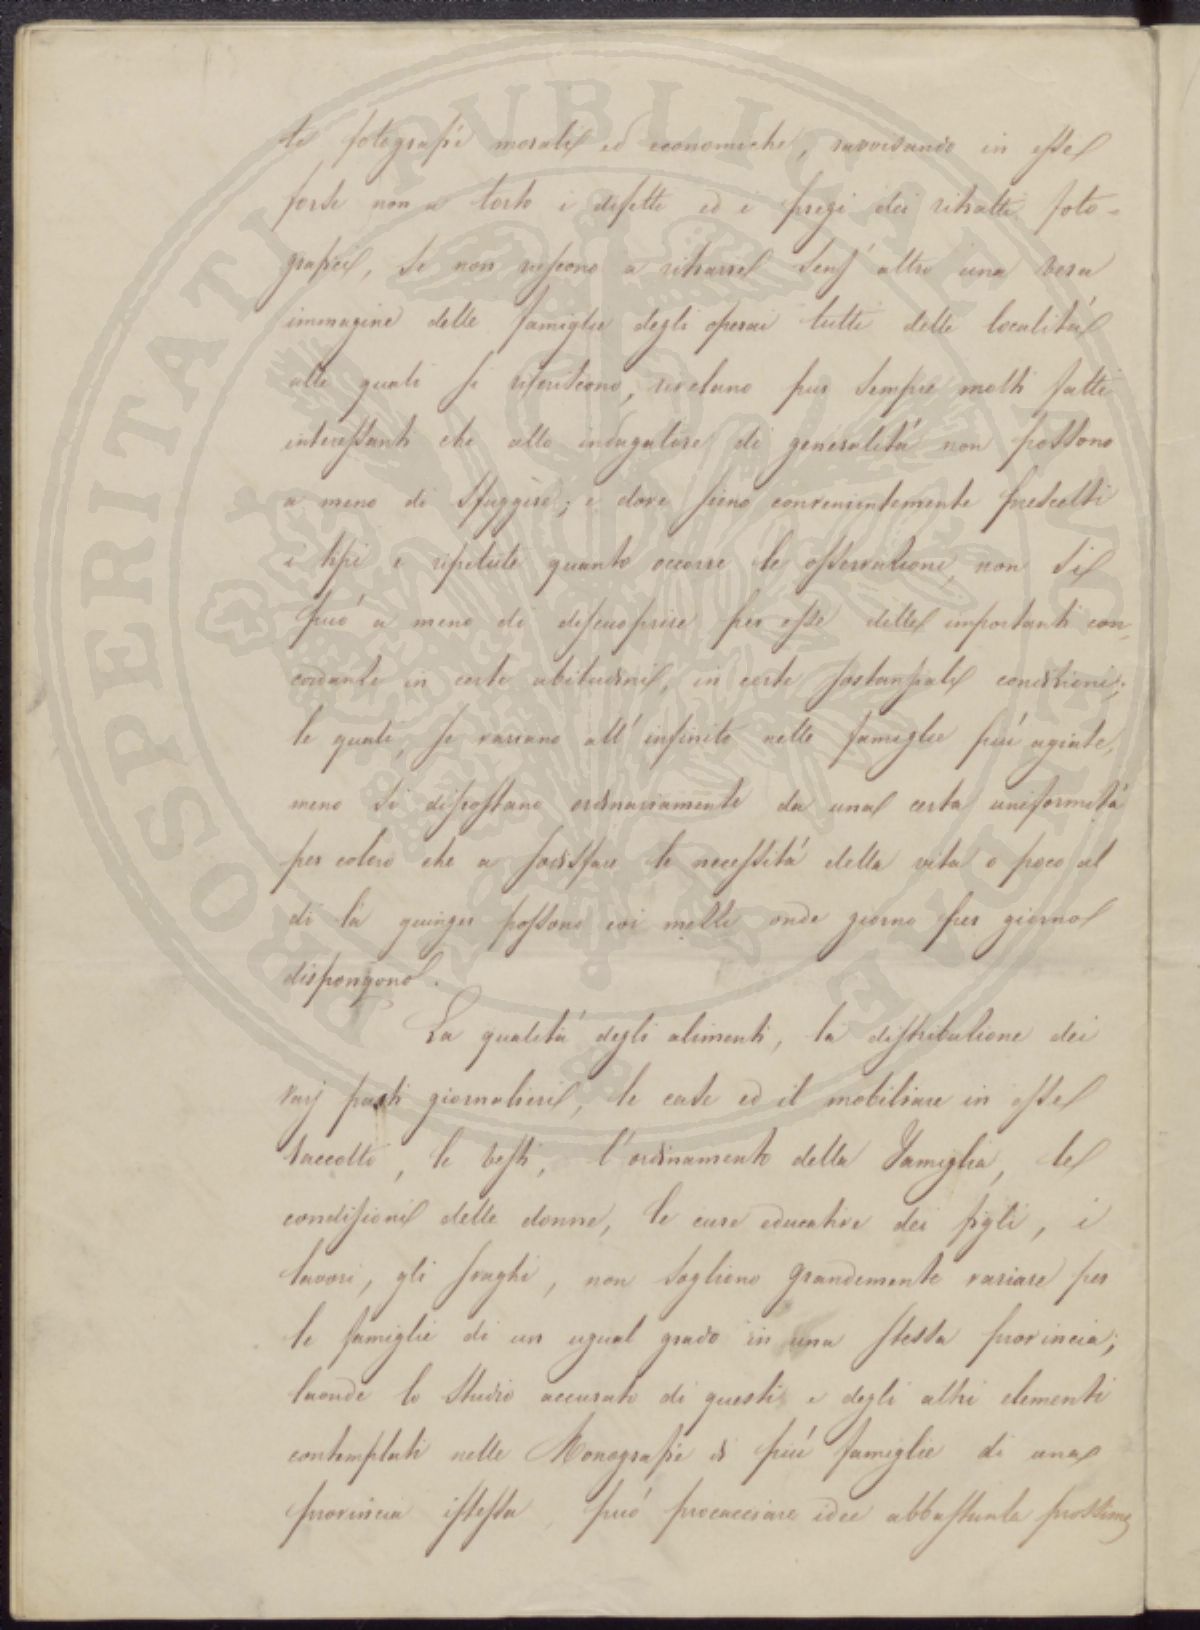 te fotografie morali ed economiche, ravvisando in esse
forse non a torto i difetti ed i pregi dei ritratti foto-
grafici, se non riescono a ritrarre senz'altro una vera
immagine delle famiglie degli operai tutti delle località
alle quali si riferiscono, rivelano pur sempre molti fatti
interessanti che allo indagatore di generalità non possono
a meno di sfuggire; e dove sieno convenientemente prescelti
i tipi e ripetute quanto occorre le osservazioni, non si
può a meno di discuoprire per esse delle importanti con-
cordanze in certe abitudini, in certe sostanziali condizioni;
le quali, se variano all'infinito nelle famiglie più agiate,
meno si discostano ordinariamente da una certa uniformità
per coloro che a sodisfare le necessità della vita o poco al
di là giunger possono coi mezzi onde giorno per giorno
dispongono.
La qualità degli alimenti, la distribuzione dei
varj pasti giornalieri, le case ed il mobiliare in esse
raccolto, le vesti, l'ordinamento della Famiglia, le
condizioni delle donne, le cure educative dei figli, i
lavori, gli svaghi, non sogliono grandemente variare per
le famiglie di un ugual grado in una stessa provincia;
laonde lo studio accurato di questi e degli altri elementi
contemplati nelle Monografie di più famiglie di una
provincia istessa, può procacciare idee abbastanza prossime
PROSPERITATI PVBLICAE AVGENDAE